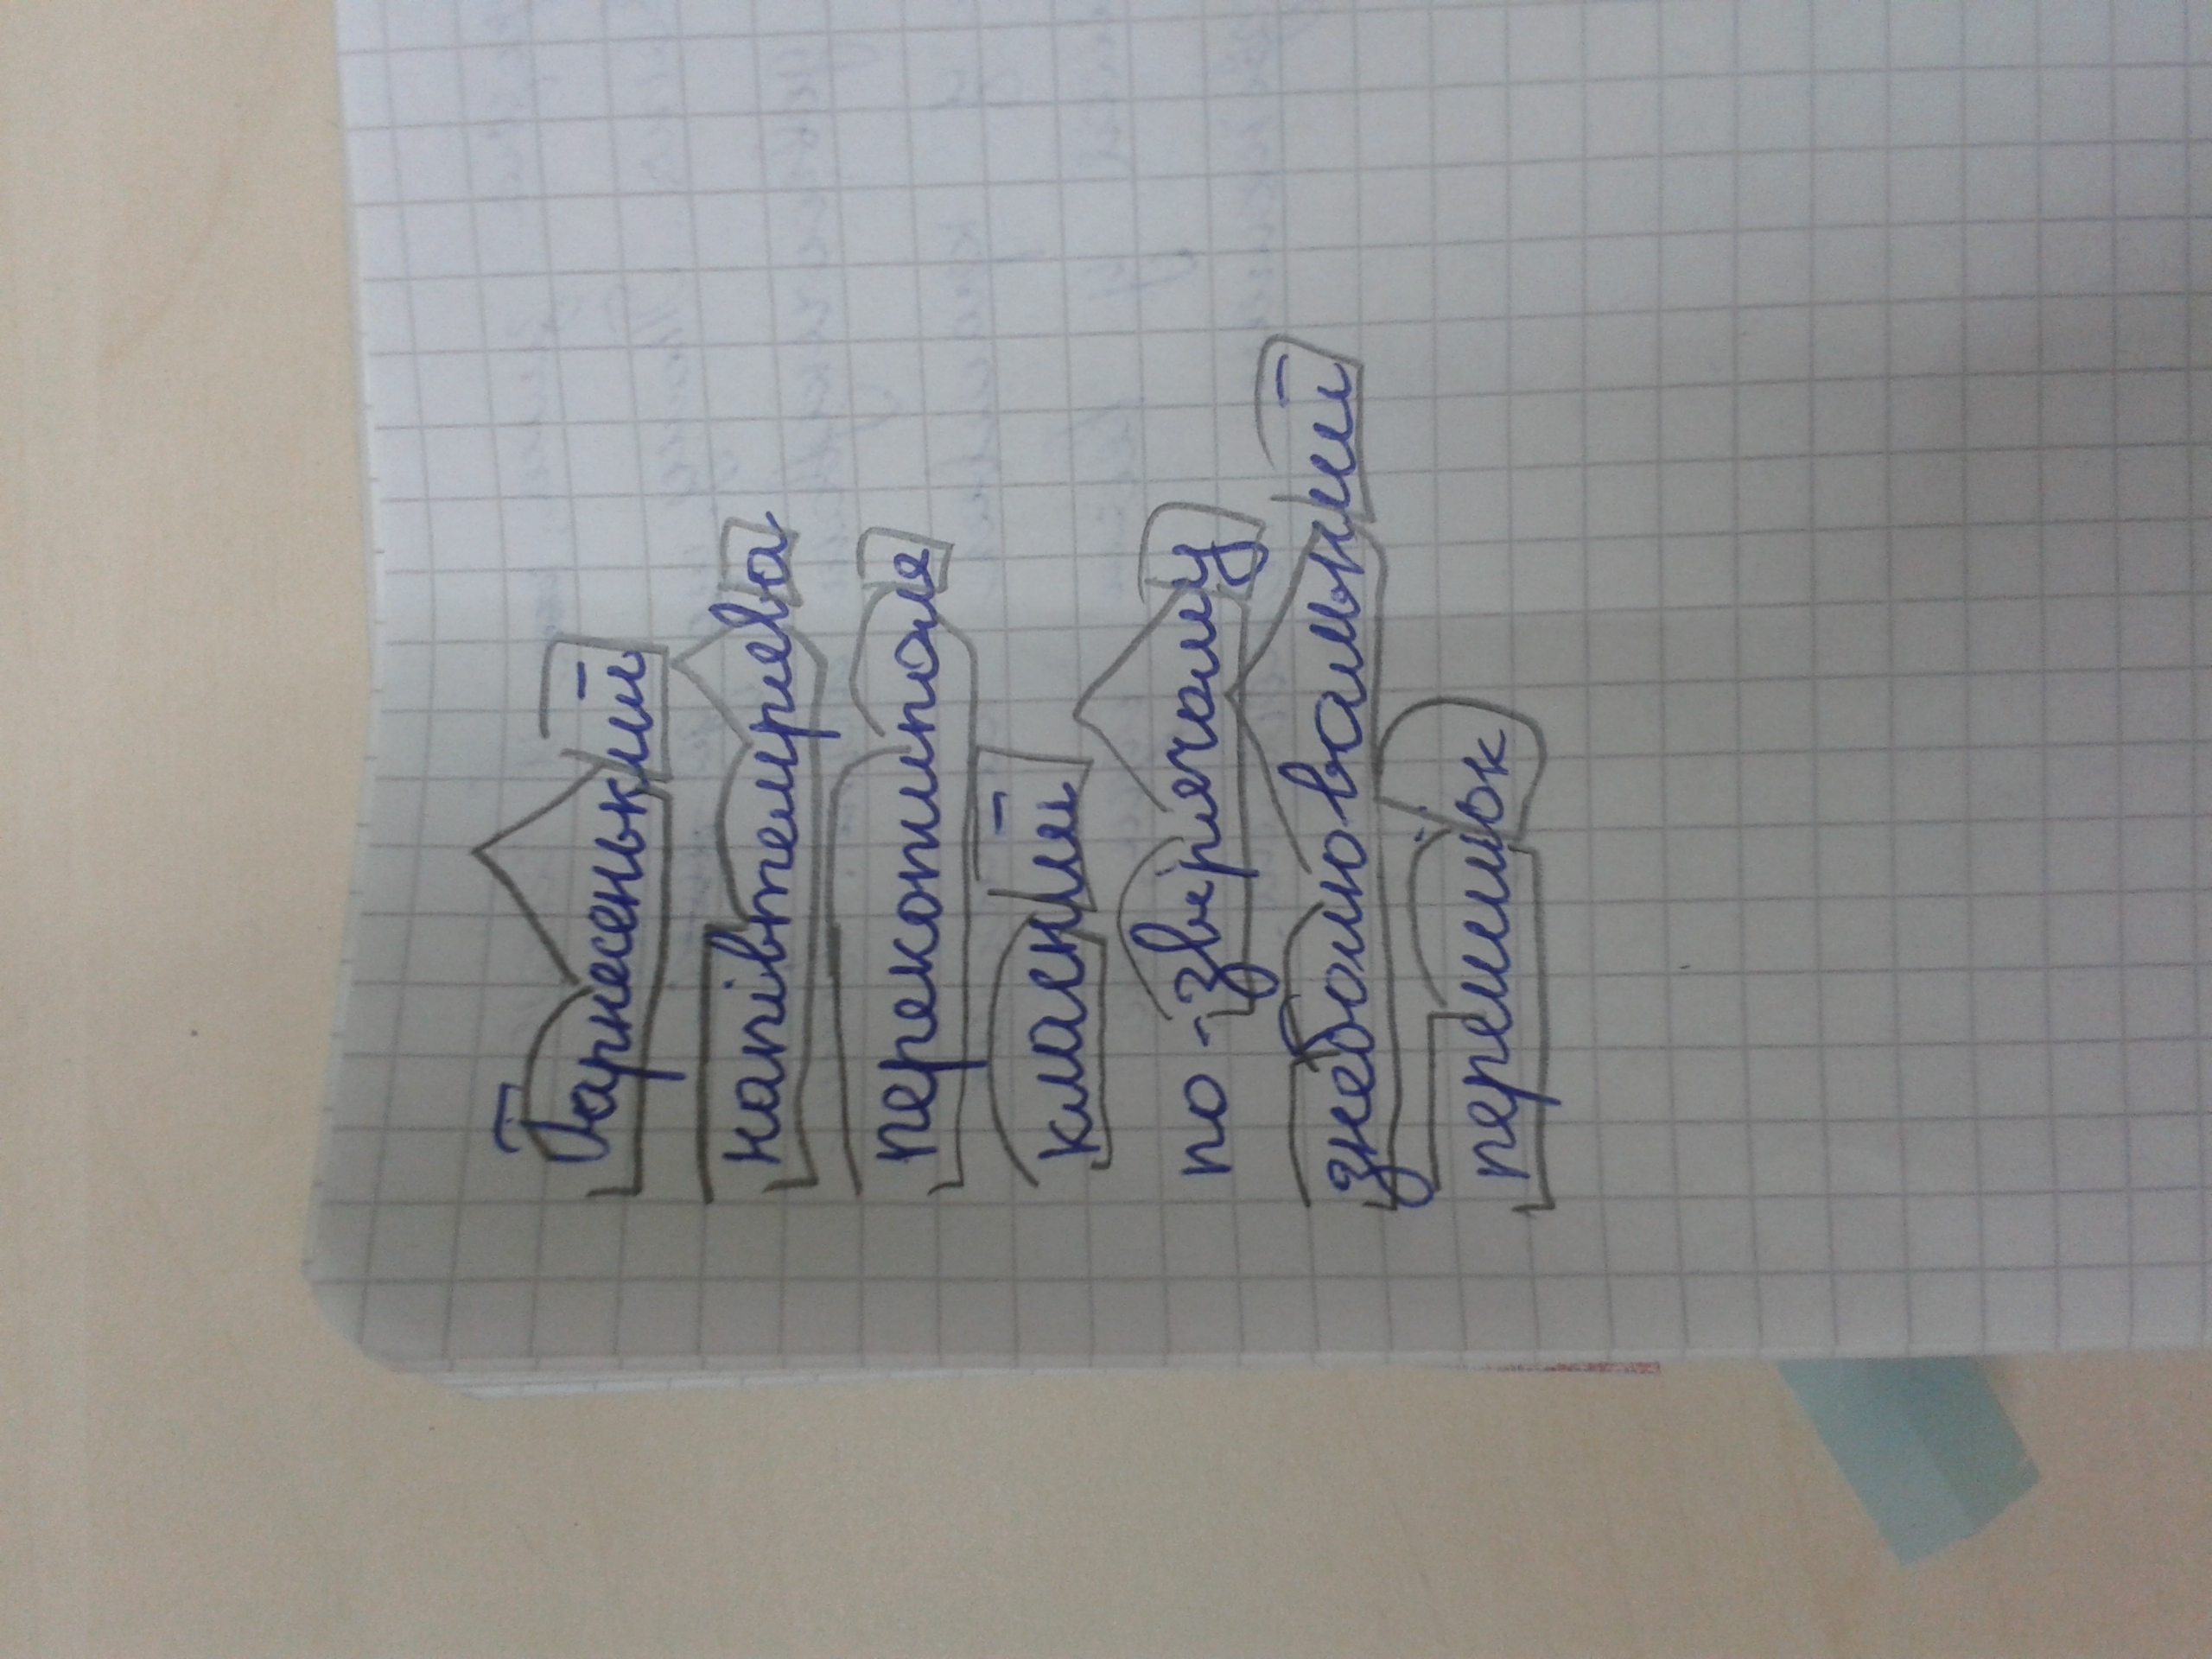 Гарнесенький
напівтемрява
перекотиполе
класний
по-звірячому
знеболювальний
перешийок